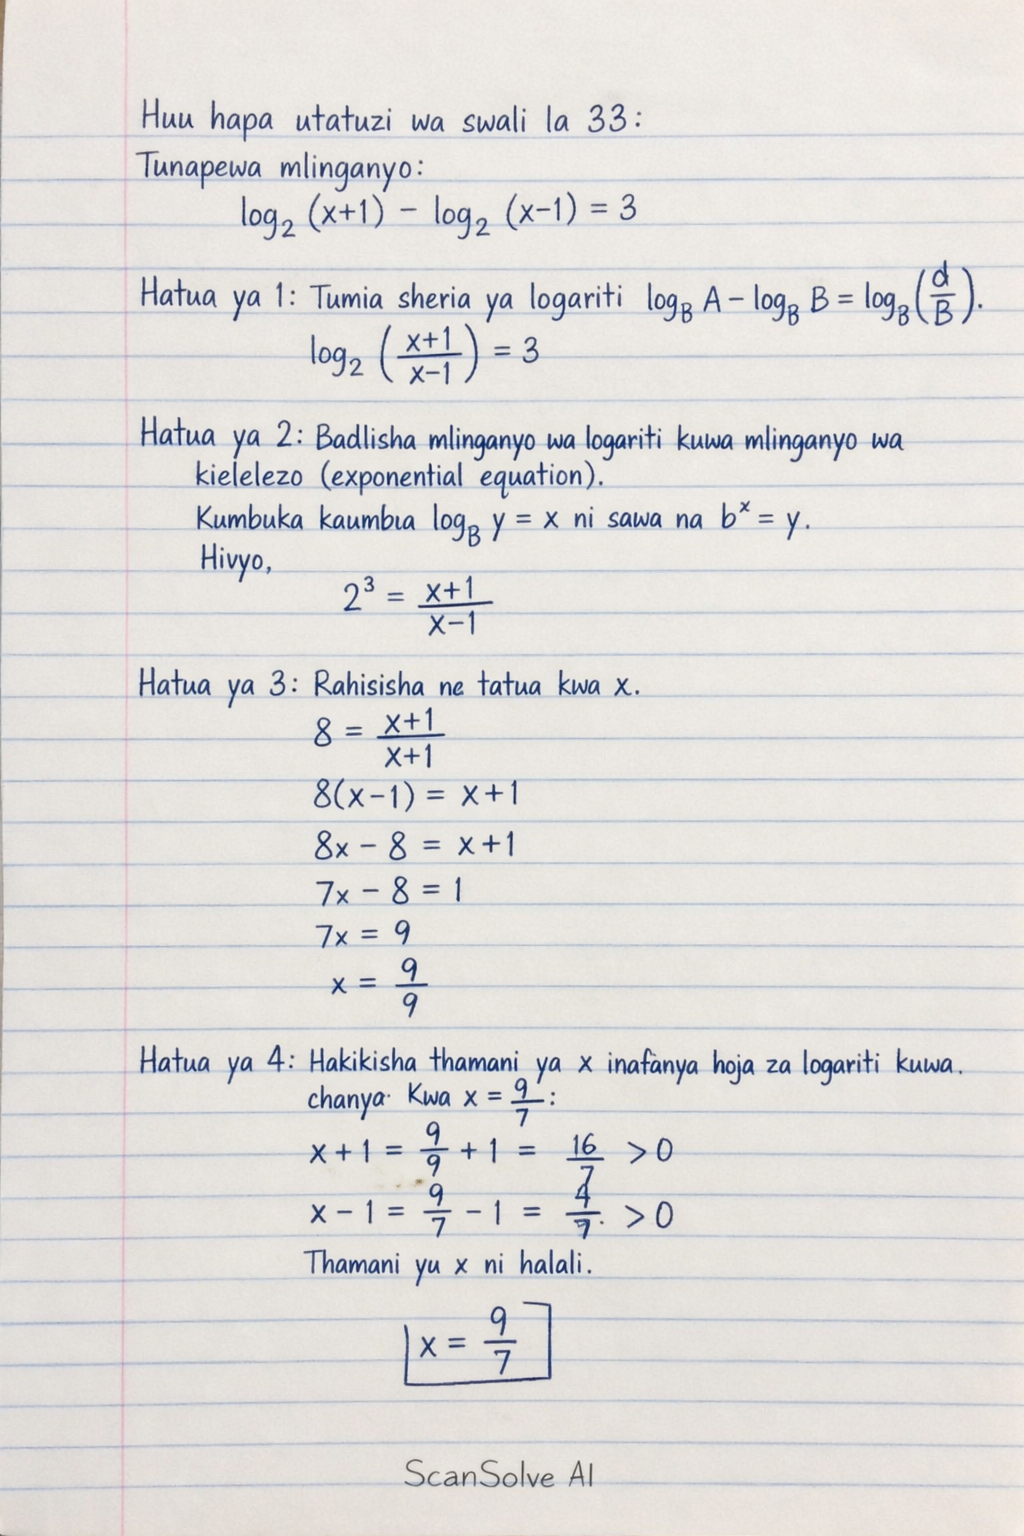 Huu hapa utatuzi wa swali la 33:
Tunapewa mlinganyo:
log₂ (x+1) − log₂ (x−1) = 3
Hatua ya 1: Tumia sheria ya logariti log_B A − log_B B = log_B (d/B).
log₂ ((x+1)/(x−1)) = 3
Hatua ya 2: Badlisha mlinganyo wa logariti kuwa mlinganyo wa
kielelezo (exponential equation).
Kumbuka kaumbıa log_B y = x ni sawa na bˣ = y.
Hivyo,
2³ = (x+1)/(x−1)
Hatua ya 3: Rahisisha ne tatua kwa x.
8 = (x+1)/(x+1)
8(x−1) = x+1
8x − 8 = x+1
7x − 8 = 1
7x = 9
x = 9/9
Hatua ya 4: Hakikisha thamani ya x inafànya hoja za logariti kuwa.
chanya· Kwa x = 9/7:
x+1 = 9/9 + 1 = 16/7 > 0
x − 1 = 9/7 − 1 = 4/7. > 0
Thamani yu x ni halali.
x = 9/7
ScanSolve AI